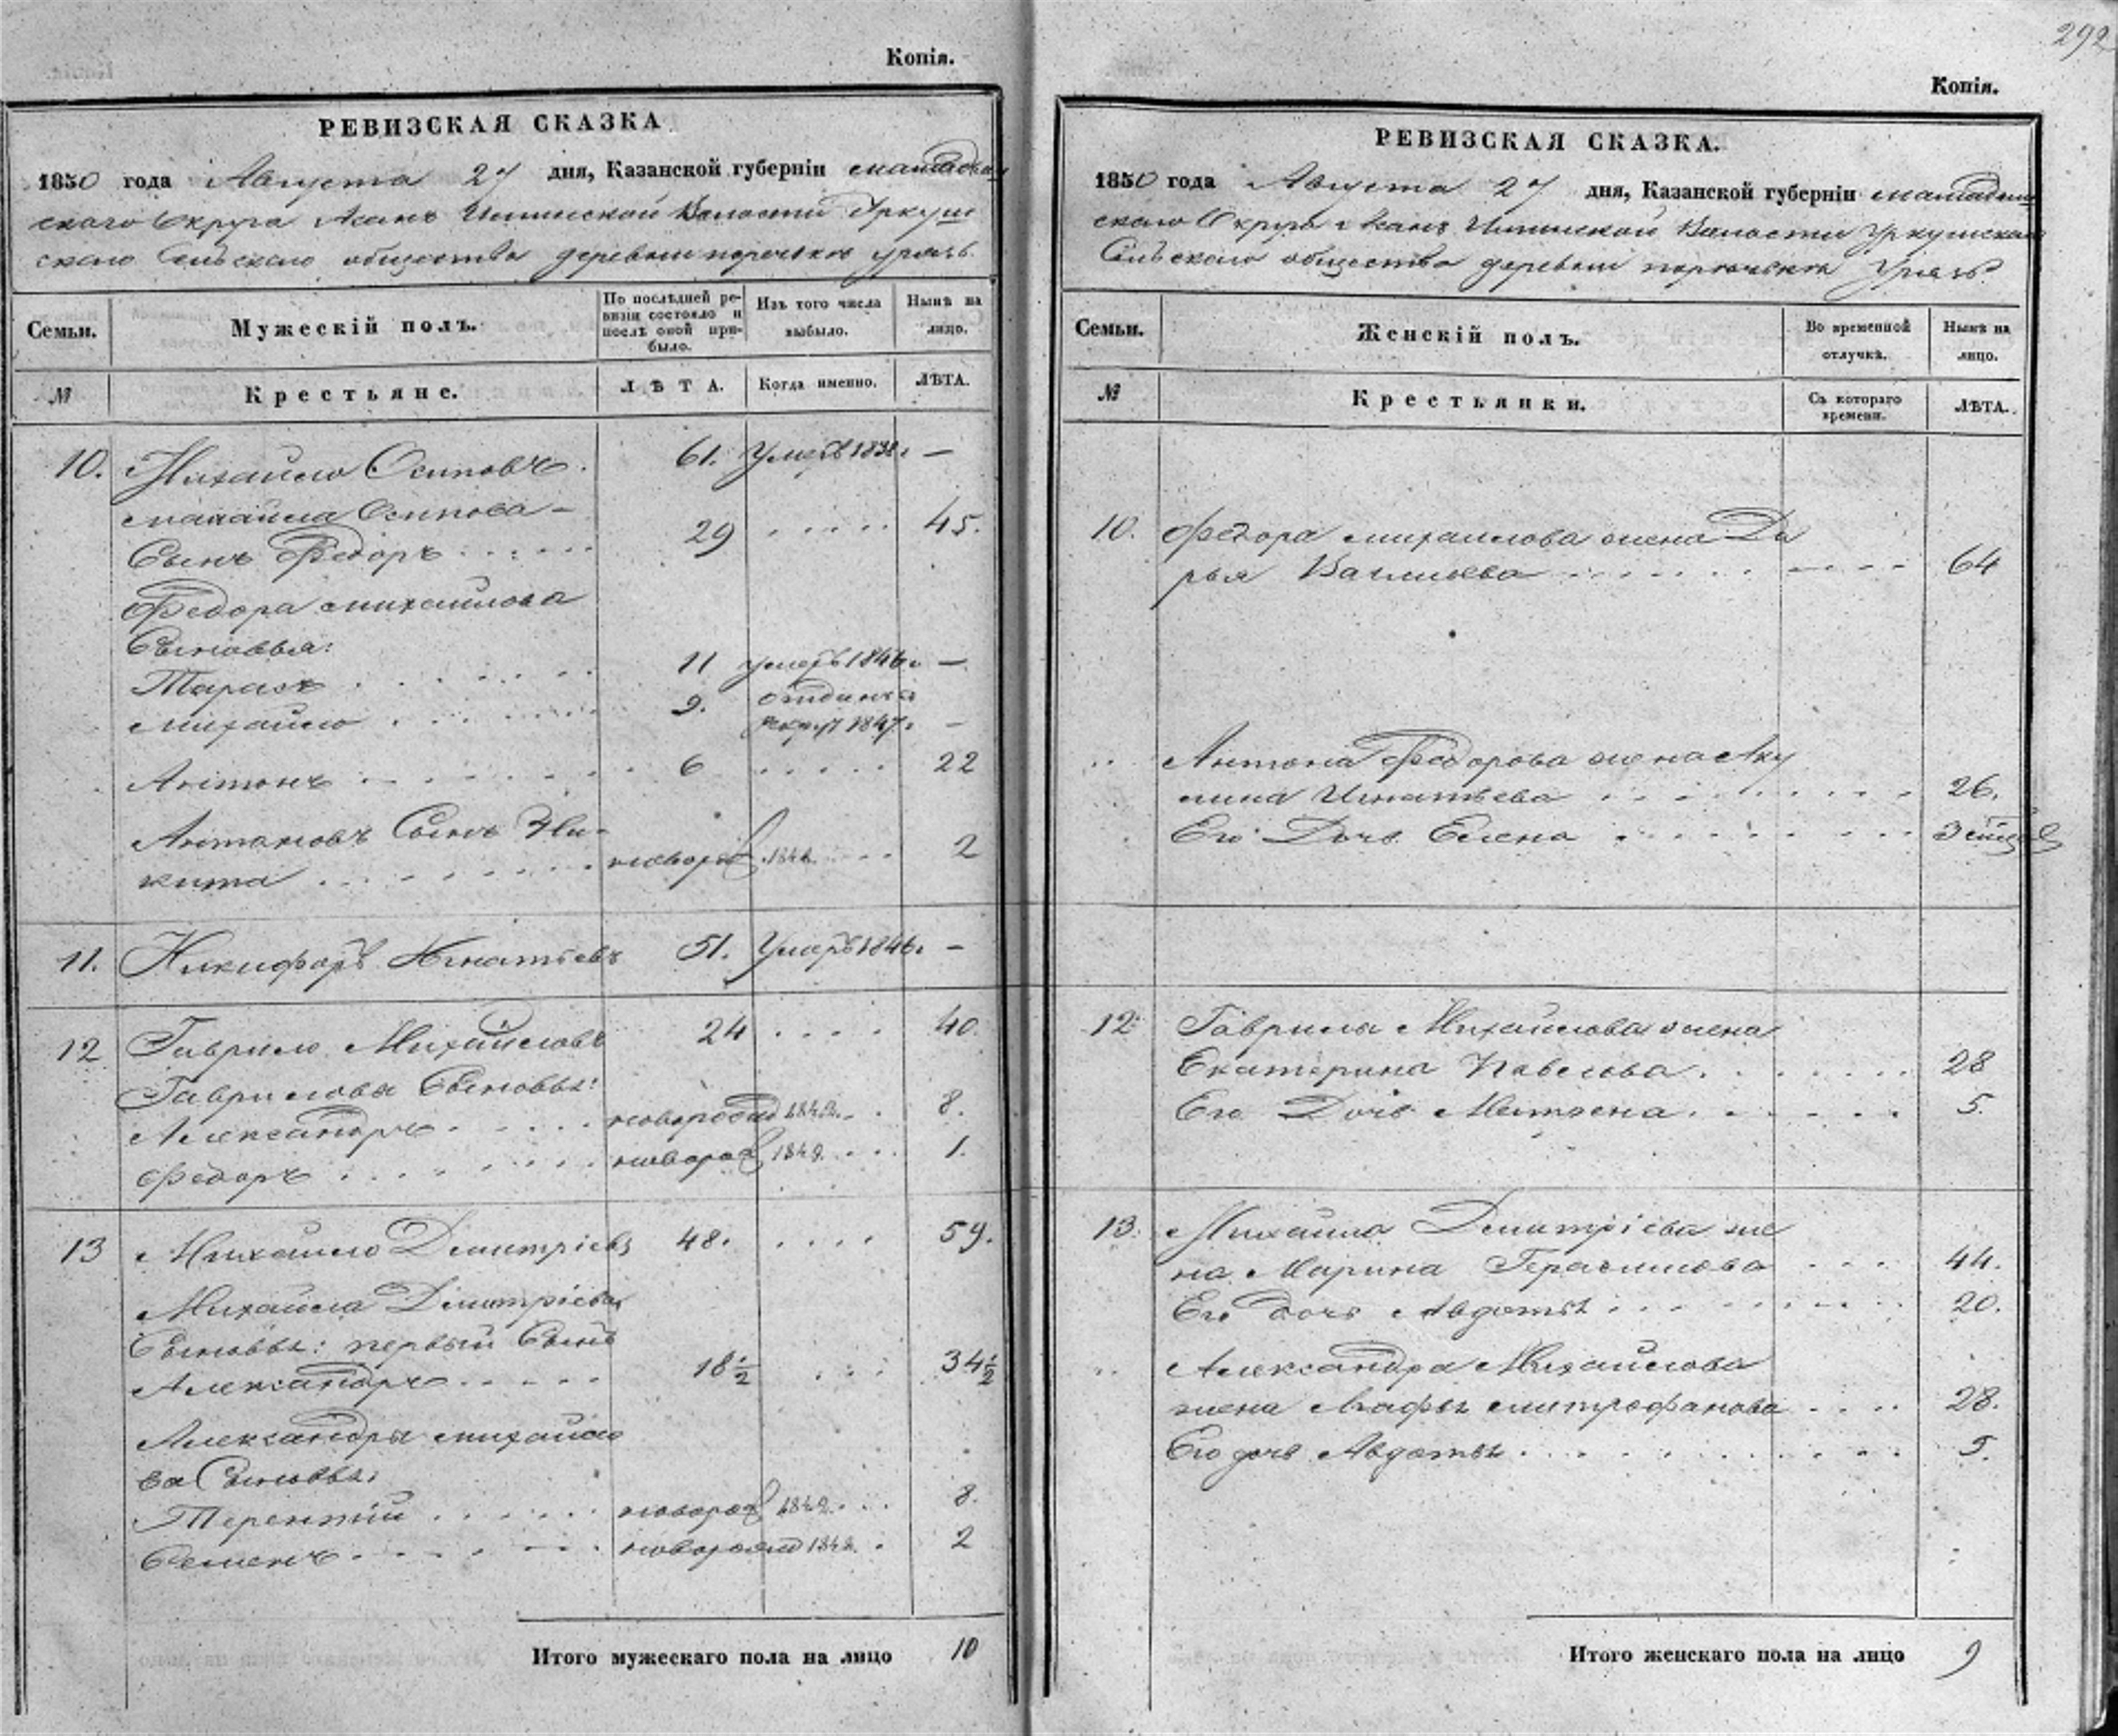 Копія.
РЕВИЗСКАЯ СКАЗКА
1850 года Августа 27 дня, Казанской губерніи
скаго Округа Волости
скаго Сельскаго общества деревни
Семьи. Мужескій полъ. По послѣдней ревизіи состояло и послѣ оной прибыло. Изъ того числа выбыло. Нынѣ на лицо.
№ Крестьяне. ЛѢТА. Когда именно. ЛѢТА.
10. Михайло Осиповъ. 61. Умеръ 1838г —
Михайла Осипова
Сынъ Федоръ 29 45.
Федора Михайлова
Сыновья:
Тарасъ 11 умеръ 1846г. —
Михайло 9. отданъ въ
рекрут 1847г. —
Антонъ 6 22
Антоновъ Сынъ Ни-
кита новорож 1848 2
11. Никифоръ Игнатьевъ 51. Умеръ 1846г. —
12 Гаврило Михайловъ 24 40.
Гаврилова Сыновья:
Александръ новорожд 1842 8.
Федоръ новорож 1849 1.
13 Михайло Дмитріевъ 48. 59.
Михайла Дмитріева
Сыновья: первый Сынъ
Александръ 18½ 34½
Александра Михайло
ва Сыновья:
Терентій новорож 1842 8.
Семенъ новорожд 1848 2
Итого мужескаго пола на лицо 10
292
Копія.
РЕВИЗСКАЯ СКАЗКА.
1850 года Августа 27 дня, Казанской губерніи
скаго Округа Волости
Сельскаго общества деревни
Семьи. Женскій полъ. Во временной отлучкѣ. Нынѣ на лицо.
№ Крестьянки. Съ котораго времени. ЛѢТА.
10. Федора Михайлова жена Да
рья Васильева 64
Антона Федорова жена Аку
лина Игнатьева 26.
Его Дочь Елена
12 Гаврилы Михайлова жена
Екатерина Павелова 28
Его Дочь Матрена 5.
13. Михайла Дмитріева же
на Марина Герасимова 44.
Его дочь Авдотья 20.
Александра Михайлова
жена Агафья Митрофанова 28.
Его дочь Авдотья 5.
Итого женскаго пола на лицо 9